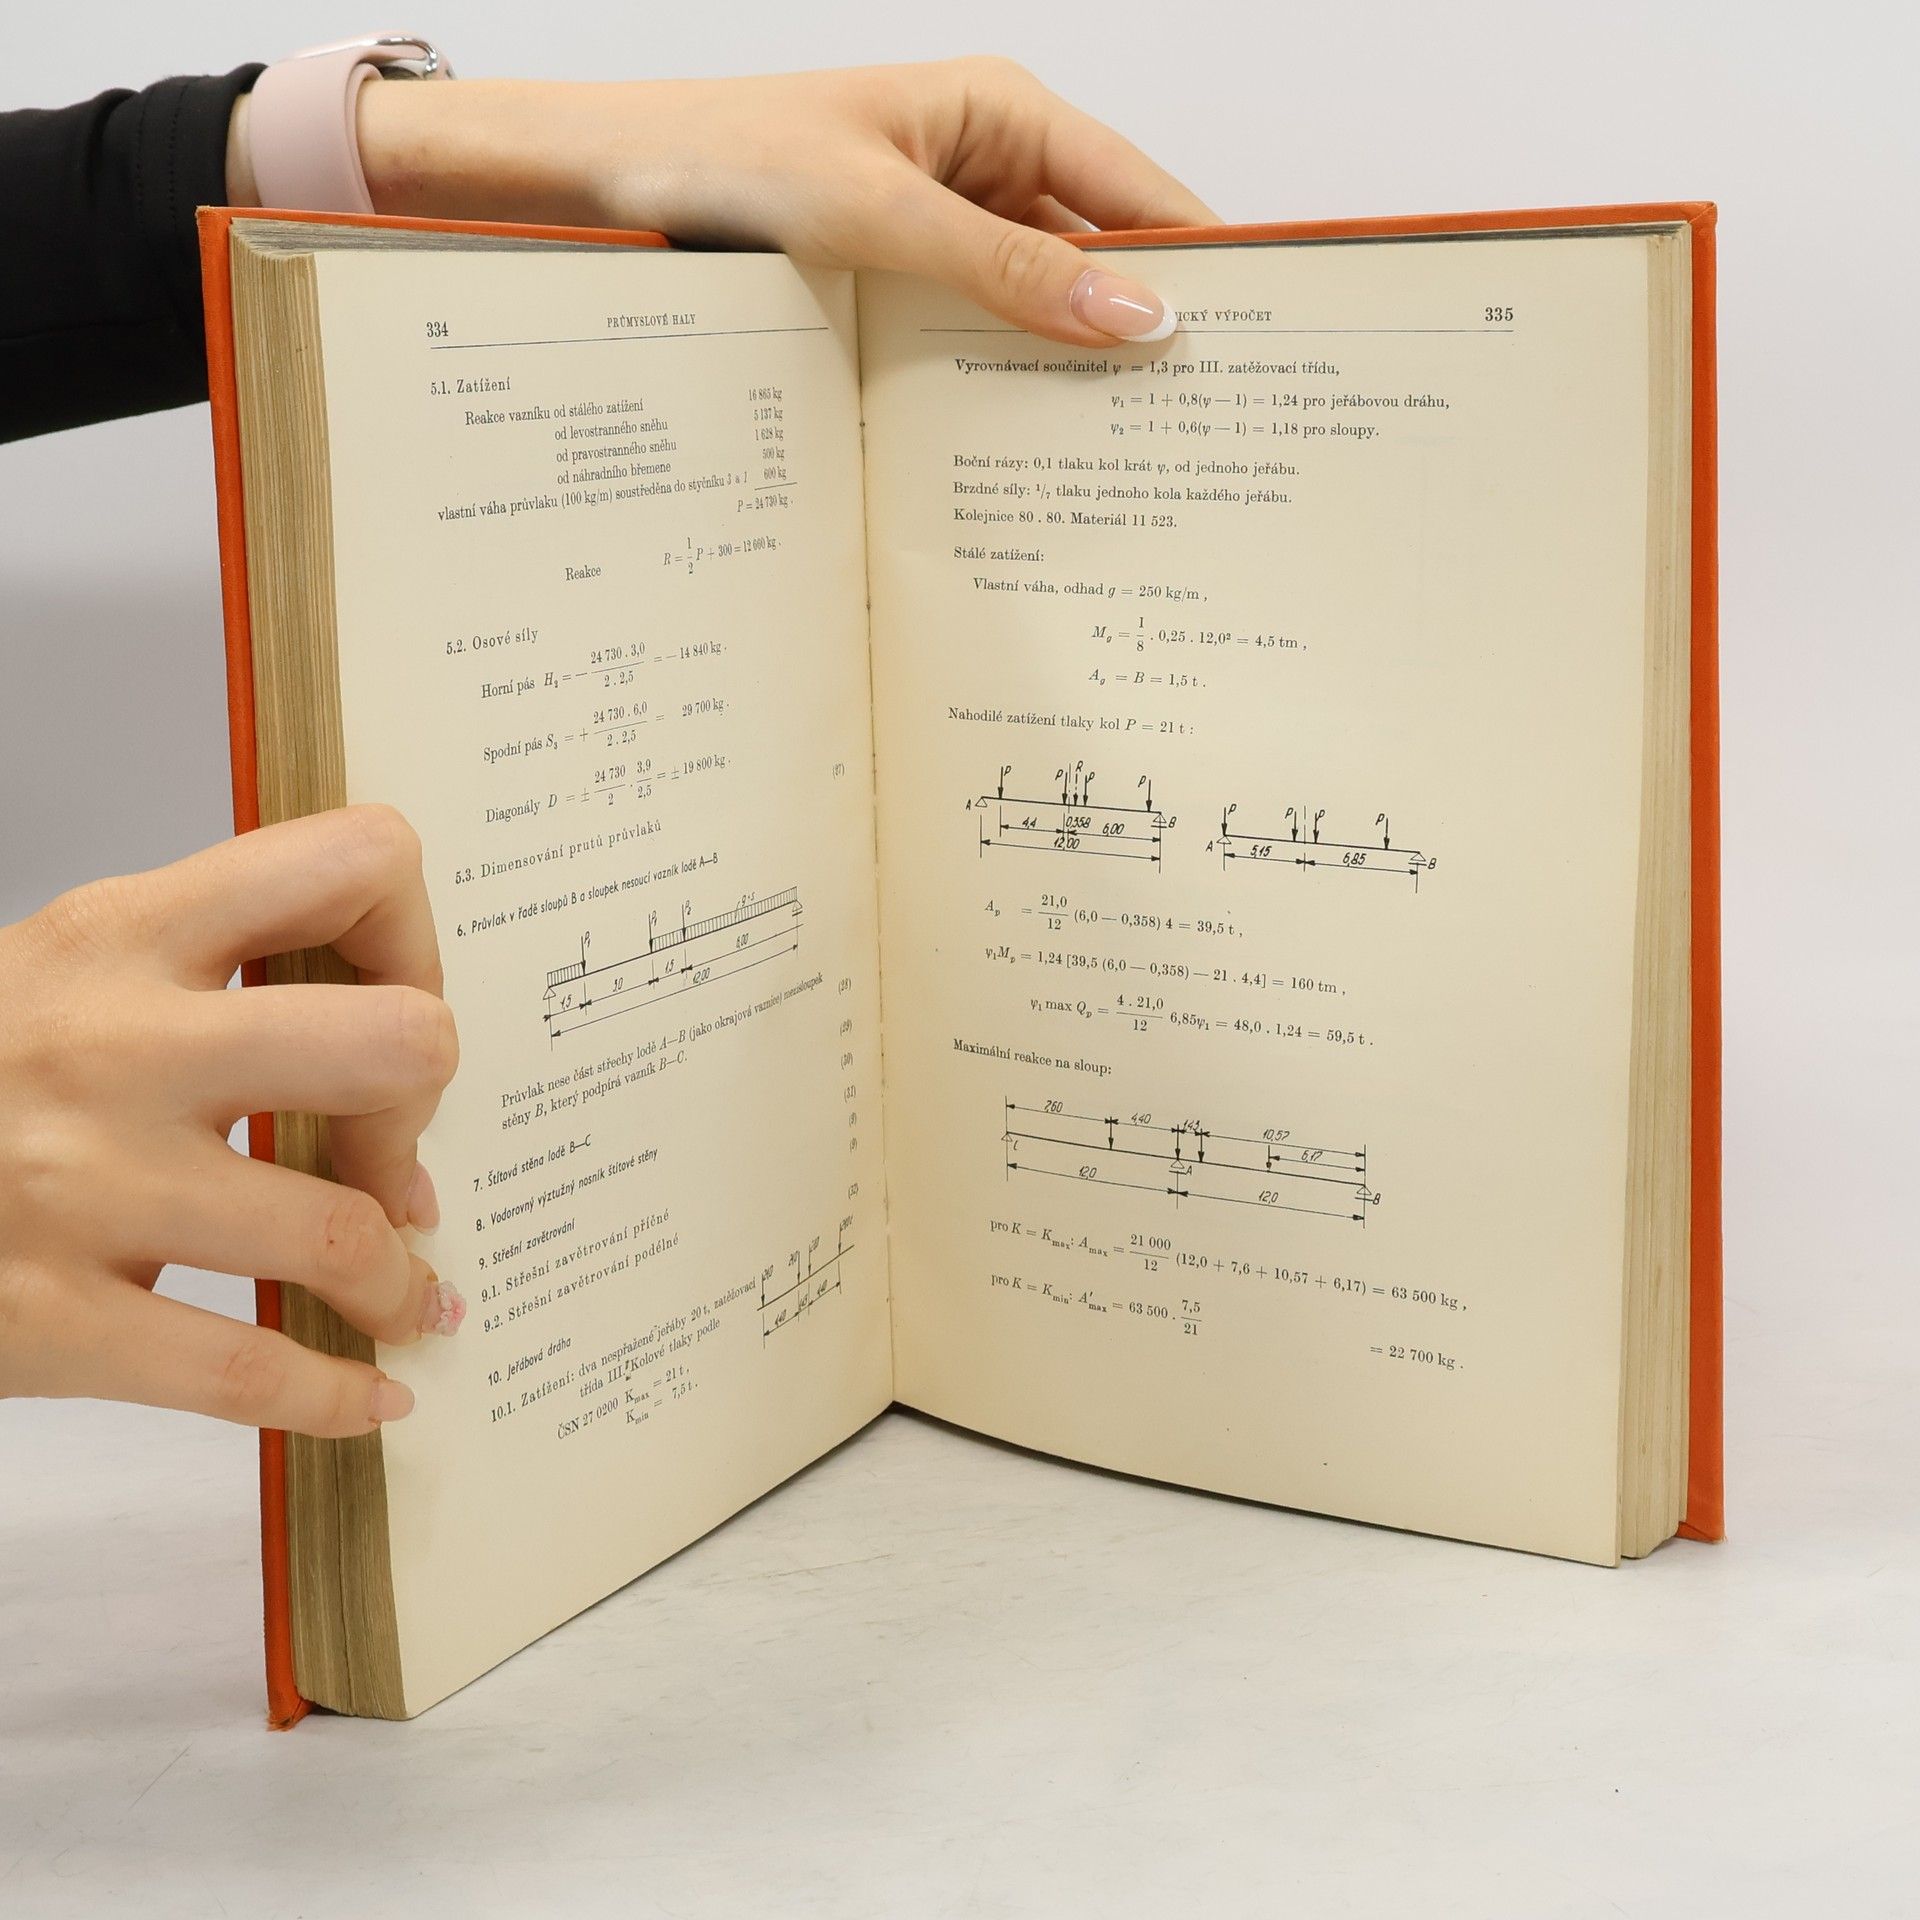 334
PRŮMYSLOVÉ HALY
5.1. Zatížení
Reakce vazníku od stálého zatížení 16 865 kg
od levostranného sněhu 5 137 kg
od pravostranného sněhu 1 628 kg
od náhradního břemene 500 kg
vlastní váha průvlaku (100 kg/m) soustředěna do styčníku 3 a 1 600 kg
P = 24 730 kg .
Reakce R = 1/2 P + 300 = 12 660 kg .
5.2. Osové síly
Horní pás H₂ = − 24 730 . 3,0 / 2 . 2,5 = − 14 840 kg .
Spodní pás S₃ = + 24 730 . 6,0 / 2 . 2,5 = 29 700 kg .
Diagonály D = ± 24 730 / 2 . 3,9 / 2,5 = ± 19 800 kg .
(27)
5.3. Dimensování prutů průvlaků
6. Průvlak v řadě sloupů B a sloupek nesoucí vazník lodě A—B
P₁ P₁ P₂ g+s
1,5 3,0 1,5 6,00
12,00
Průvlak nese část střechy lodě A—B (jako okrajová vaznice) mezisloupek (28)
stěny B, který podpírá vazník B—C.
(29)
(30)
7. Štítová stěna lodě B—C (31)
8. Vodorovný výztužný nosník štítové stěny (9)
9. Střešní zavětrování (9)
9.1. Střešní zavětrování příčné
9.2. Střešní zavětrování podélné (32)
10. Jeřábová dráha
10.1. Zatížení: dva nespřažené jeřáby 20 t, zatěžovací
třída III. Kolové tlaky podle
ČSN 27 0200 Kmax = 21 t,
Kmin = 7,5 t.
4,40 4,40
ICKÝ VÝPOČET
335
Vyrovnávací součinitel ψ = 1,3 pro III. zatěžovací třídu,
ψ₁ = 1 + 0,8(ψ — 1) = 1,24 pro jeřábovou dráhu,
ψ₂ = 1 + 0,6(ψ — 1) = 1,18 pro sloupy.
Boční rázy: 0,1 tlaku kol krát ψ, od jednoho jeřábu.
Brzdné síly: 1/7 tlaku jednoho kola každého jeřábu.
Kolejnice 80 . 80. Materiál 11 523.
Stálé zatížení:
Vlastní váha, odhad g = 250 kg/m ,
M_g = 1/8 . 0,25 . 12,0² = 4,5 tm ,
A_g = B = 1,5 t .
Nahodilé zatížení tlaky kol P = 21 t :
P P R P P
A B
4,4 0,358 6,00
12,00
P P P P
A B
5,15 6,85
A_p = 21,0/12 (6,0 — 0,358) 4 = 39,5 t ,
ψ₁M_p = 1,24 [39,5 (6,0 — 0,358) — 21 . 4,4] = 160 tm ,
ψ₁ max Q_p = 4 . 21,0 / 12 6,85ψ₁ = 48,0 . 1,24 = 59,5 t .
Maximální reakce na sloup:
7,60 4,40 1,43 10,57
6,17
C A B
12,0 12,0
pro K = Kmax: Amax = 21 000/12 (12,0 + 7,6 + 10,57 + 6,17) = 63 500 kg ,
pro K = Kmin: A′max = 63 500 . 7,5/21
= 22 700 kg .